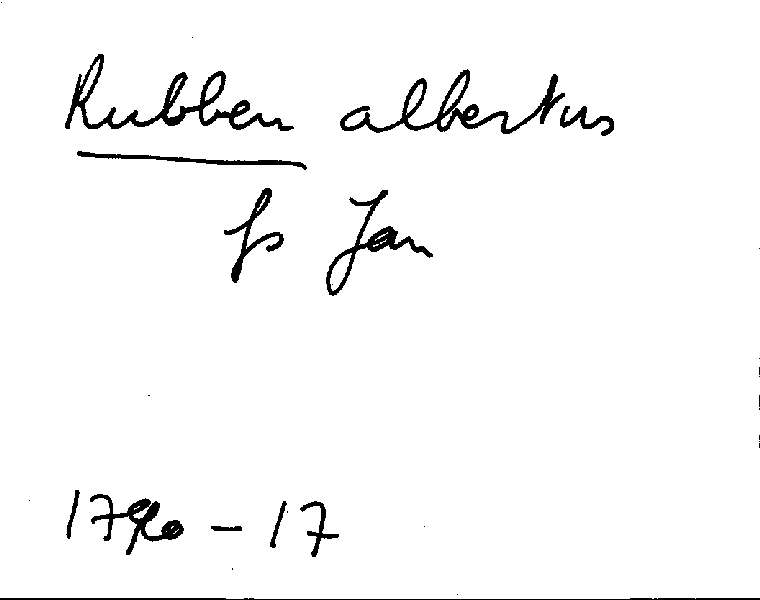 Rubben albertus
fs Jan
1790 - 17